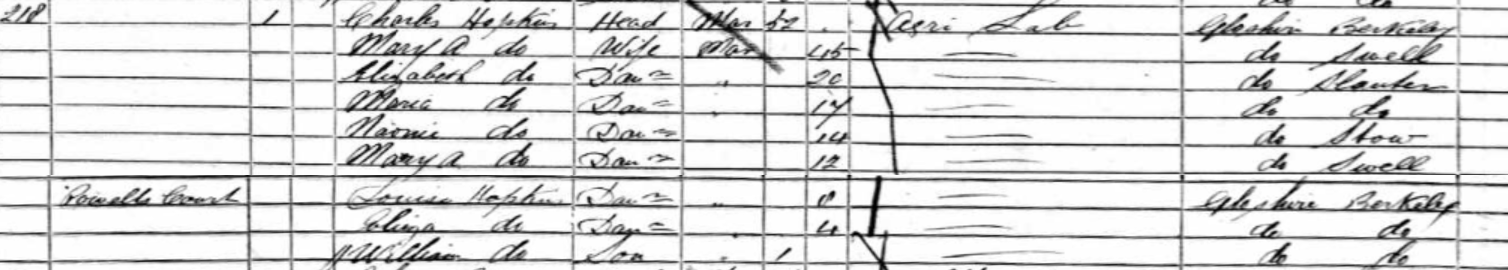 218 1 Charles Hopkins Head Mar 52 Agri Lab Gloshire Berkeley
Mary A do Wife Mar 45 do Swell
Elizabeth do Daur 20 do Slauter
Maria do Daur 17 do do
Naomi do Daur 14 do Stow
Mary A do Daur 12 do Swell
Powells Court Louisa Hopkins Daur 8 Gloshire Berkeley
Eliza do Daur 4 do do
William do Son 1 do do